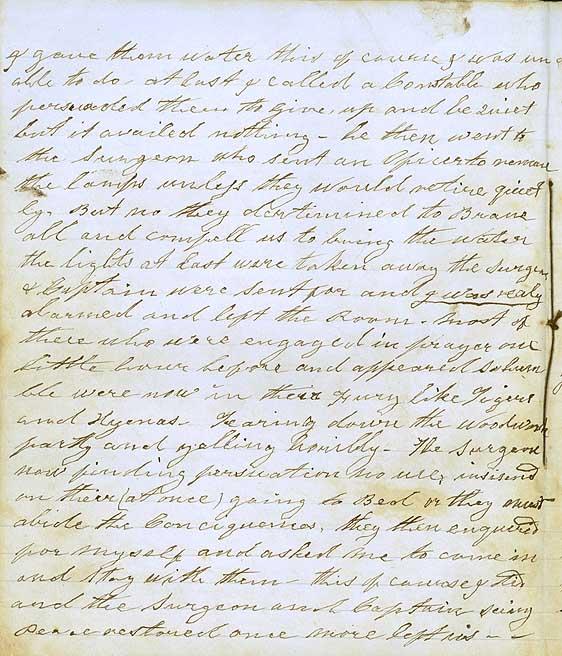 & gave them water this of course I was un
able to do at last I called a Constable who
persuaded them to give up and be Quiet
but it availed nothing - he then went to
the Surgeon who sent an Officer to remove
the lamps unless they would retire quiet
ly. But no they ditirmined to Brave
all and compell us to bring the water
the lights at last were taken away the Surgeon
& Captain were sent for and I was realy
alarmed and left the Room. Most of
these who were engaged in prayer one
little hour before and appeared so hum
ble were now in their Fury like Tigers
and Hyenas - Tearing down the woodwork
partly and yelling horribly - The Surgeon
now finding persuation no use, insisted
on their (at once) going to Bed or they must
abide the Conciquences, they then enquired
for myself and asked me to come in
and Stay with them - this of course I did
and the Surgeon and Captain seing
Peace restored once more left us - -